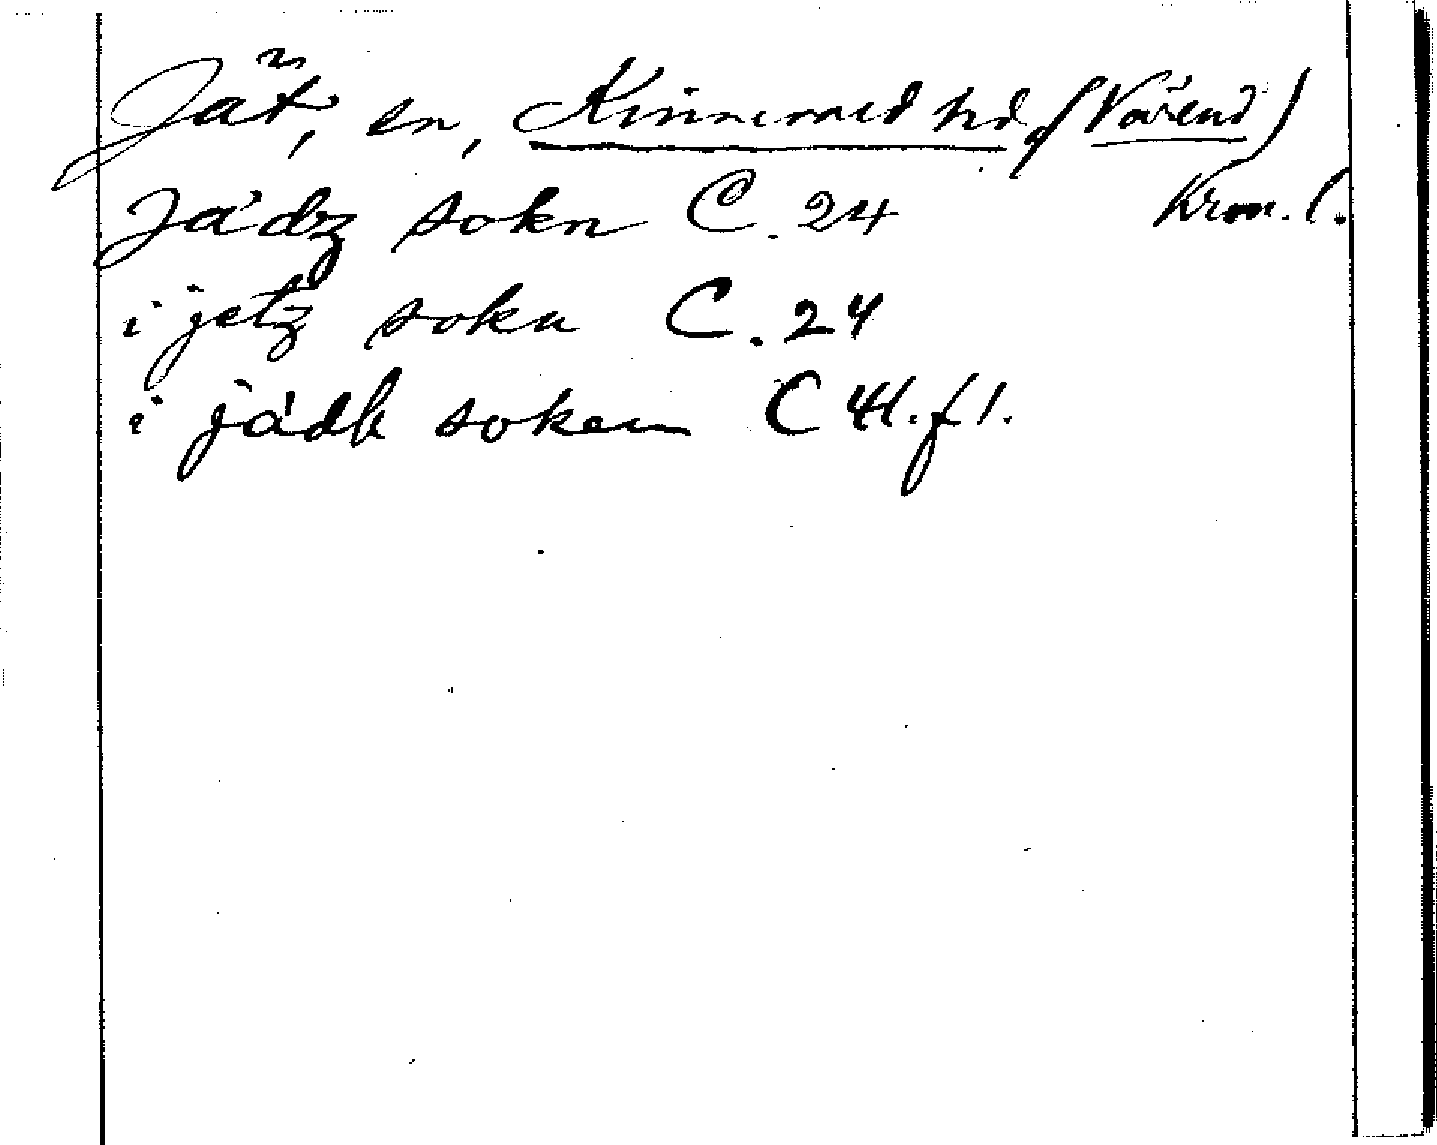 Jät, sn, Kinnevald hd. (Värend)
Kron. l.
Jädz sokn C. 24
i jetz sokn C. 24
i jädh soken C 4H. f 1.